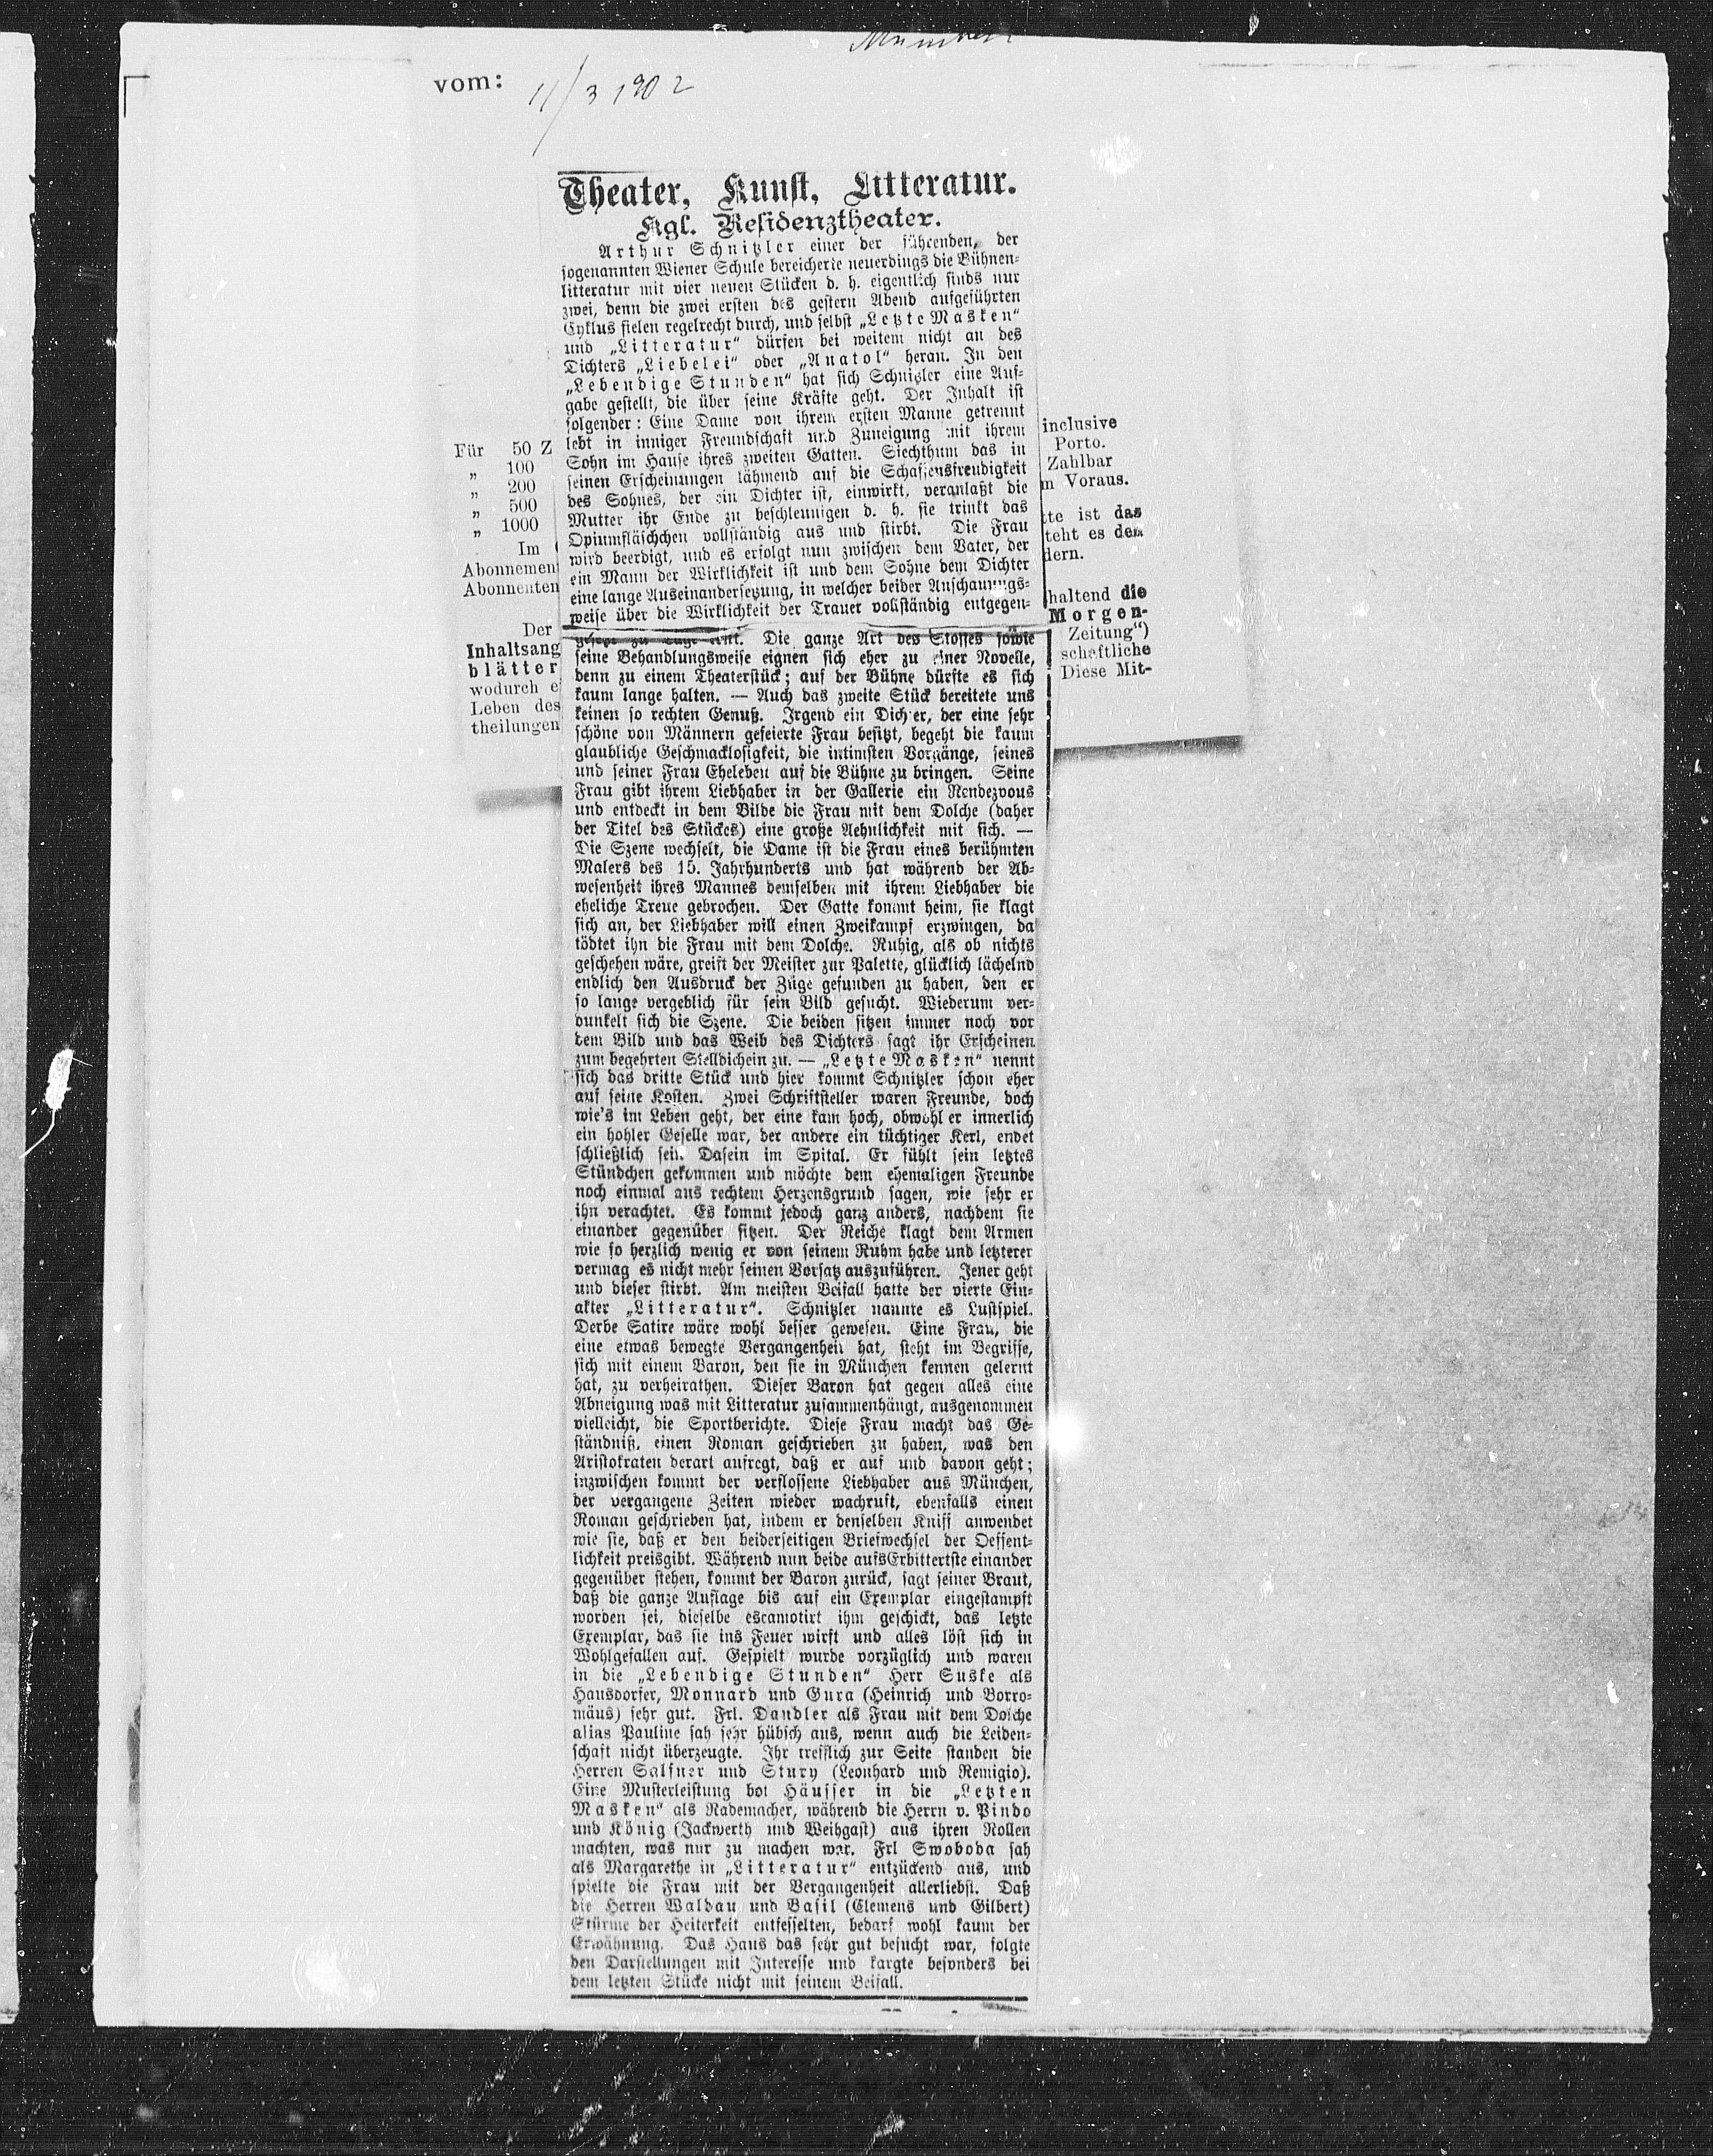 München
vom: 11/3 1902
Theater, Kunst, Litteratur.
Kgl. Residenztheater.
Arthur Schnitzler einer der führenden, der
sogenannten Wiener Schule bereicherte neuerdings die Bühnen-
litteratur mit vier neuen Stücken d. h. eigentlich sinds nur
zwei, denn die zwei ersten des gestern Abend aufgeführten
Cyklus fielen regelrecht durch, und selbst „Letzte Masken"
und „Litteratur" dürfen bei weitem nicht an des
Dichters „Liebelei" oder „Anatol" heran. In den
„Lebendige Stunden" hat sich Schnitzler eine Auf-
gabe gestellt, die über seine Kräfte geht. Der Inhalt ist
folgender: Eine Dame von ihrem ersten Manne getrennt
lebt in inniger Freundschaft und Zuneigung mit ihrem
Sohn im Hause ihres zweiten Gatten. Siechthum das in
seinen Erscheinungen lähmend auf die Schaffensfreudigkeit
des Sohnes, der ein Dichter ist, einwirkt, veranlaßt die
Mutter ihr Ende zu beschleunigen d. h. sie trinkt das
Opiumfläschchen vollständig aus und stirbt. Die Frau
wird beerdigt, und es erfolgt nun zwischen dem Vater, der
ein Mann der Wirklichkeit ist und dem Sohne dem Dichter
eine lange Auseinandersetzung, in welcher beider Anschauungs-
weise über die Wirklichkeit der Trauer vollständig entgegen-
gesetzt zu Tage tritt. Die ganze Art des Stoffes sowie
seine Behandlungsweise eignen sich eher zu einer Novelle,
denn zu einem Theaterstück; auf der Bühne dürfte es sich
kaum lange halten. — Auch das zweite Stück bereitete uns
keinen so rechten Genuß. Irgend ein Dichter, der eine sehr
schöne von Männern gefeierte Frau besitzt, begeht die kaum
glaubliche Geschmacklosigkeit, die intimsten Vorgänge, seines
und seiner Frau Eheleben auf die Bühne zu bringen. Seine
Frau gibt ihrem Liebhaber in der Gallerie ein Rendezvous
und entdeckt in dem Bilde die Frau mit dem Dolche (daher
der Titel des Stückes) eine große Aehnlichkeit mit sich. —
Die Szene wechselt, die Dame ist die Frau eines berühmten
Malers des 15. Jahrhunderts und hat während der Ab-
wesenheit ihres Mannes demselben mit ihrem Liebhaber die
eheliche Treue gebrochen. Der Gatte kommt heim, sie klagt
sich an, der Liebhaber will einen Zweikampf erzwingen, da
tödtet ihn die Frau mit dem Dolche. Ruhig, als ob nichts
geschehen wäre, greift der Meister zur Palette, glücklich lächelnd
endlich den Ausdruck der Züge gefunden zu haben, den er
so lange vergeblich für sein Bild gesucht. Wiederum ver-
dunkelt sich die Szene. Die beiden sitzen immer noch vor
dem Bild und das Weib des Dichters sagt ihr Erscheinen
zum begehrten Stelldichein zu. — „Letzte Masken" nennt
sich das dritte Stück und hier kommt Schnitzler schon eher
auf seine Kosten. Zwei Schriftsteller waren Freunde, doch
wie's im Leben geht, der eine kam hoch, obwohl er innerlich
ein hohler Geselle war, der andere ein tüchtiger Kerl, endet
schließlich sein Dasein im Spital. Er fühlt sein letztes
Stündchen gekommen und möchte dem ehemaligen Freunde
noch einmal aus rechtem Herzensgrund sagen, wie sehr er
ihn verachtet. Es kommt jedoch ganz anders, nachdem sie
einander gegenüber sitzen. Der Reiche klagt dem Armen
wie so herzlich wenig er von seinem Ruhm habe und letzterer
vermag es nicht mehr seinen Vorsatz auszuführen. Jener geht
und dieser stirbt. Am meisten Beifall hatte der vierte Ein-
akter „Litteratur". Schnitzler nannte es Lustspiel.
Derbe Satire wäre wohl besser gewesen. Eine Frau, die
eine etwas bewegte Vergangenheit hat, steht im Begriffe,
sich mit einem Baron, den sie in München kennen gelernt
hat, zu verheirathen. Dieser Baron hat gegen alles eine
Abneigung was mit Litteratur zusammenhängt, ausgenommen
vielleicht, die Sportberichte. Diese Frau macht das Ge-
ständniß, einen Roman geschrieben zu haben, was den
Aristokraten derart aufregt, daß er auf und davon geht;
inzwischen kommt der verflossene Liebhaber aus München,
der vergangene Zeiten wieder wachruft, ebenfalls einen
Roman geschrieben hat, indem er denselben Kniff anwendet
wie sie, daß er den beiderseitigen Briefwechsel der Oeffent-
lichkeit preisgibt. Während nun beide aufs Erbittertste einander
gegenüber stehen, kommt der Baron zurück, sagt seiner Braut,
daß die ganze Auflage bis auf ein Exemplar eingestampft
worden sei, dieselbe escamotirt ihm geschickt, das letzte
Exemplar, das sie ins Feuer wirft und alles löst sich in
Wohlgefallen auf. Gespielt wurde vorzüglich und waren
in die „Lebendige Stunden" Herr Suske als
Hausdorfer, Monnard und Gura (Heinrich und Borro-
mäus) sehr gut. Frl. Dandler als Frau mit dem Dolche
alias Pauline sah sehr hübsch aus, wenn auch die Leiden-
schaft nicht überzeugte. Ihr trefflich zur Seite standen die
Herren Salfner und Stury (Leonhard und Remigio).
Eine Musterleistung bot Häusser in die „Letzten
Masken" als Rademacher, während die Herrn v. Pindo
und König (Jackwerth und Weihgast) aus ihren Rollen
machten, was nur zu machen war. Frl Swoboda sah
als Margarethe in „Litteratur" entzückend aus, und
spielte die Frau mit der Vergangenheit allerliebst. Daß
die Herren Waldau und Basil (Clemens und Gilbert)
Stürme der Heiterkeit entfesselten, bedarf wohl kaum der
Erwähnung. Das Haus das sehr gut besucht war, folgte
den Darstellungen mit Interesse und kargte besonders bei
dem letzten Stücke nicht mit seinem Beifall.
Für 50 Z
„ 100
„ 200
„ 500
„ 1000
Im
Abonnemen
Abonnenten
Der
Inhaltsang
blätter
wodurch e
Leben des
theilungen
inclusive
Porto.
Zahlbar
m Voraus.
tte ist das
teht es den
dern.
haltend die
Morgen-
Zeitung")
schaftliche
Diese Mit-